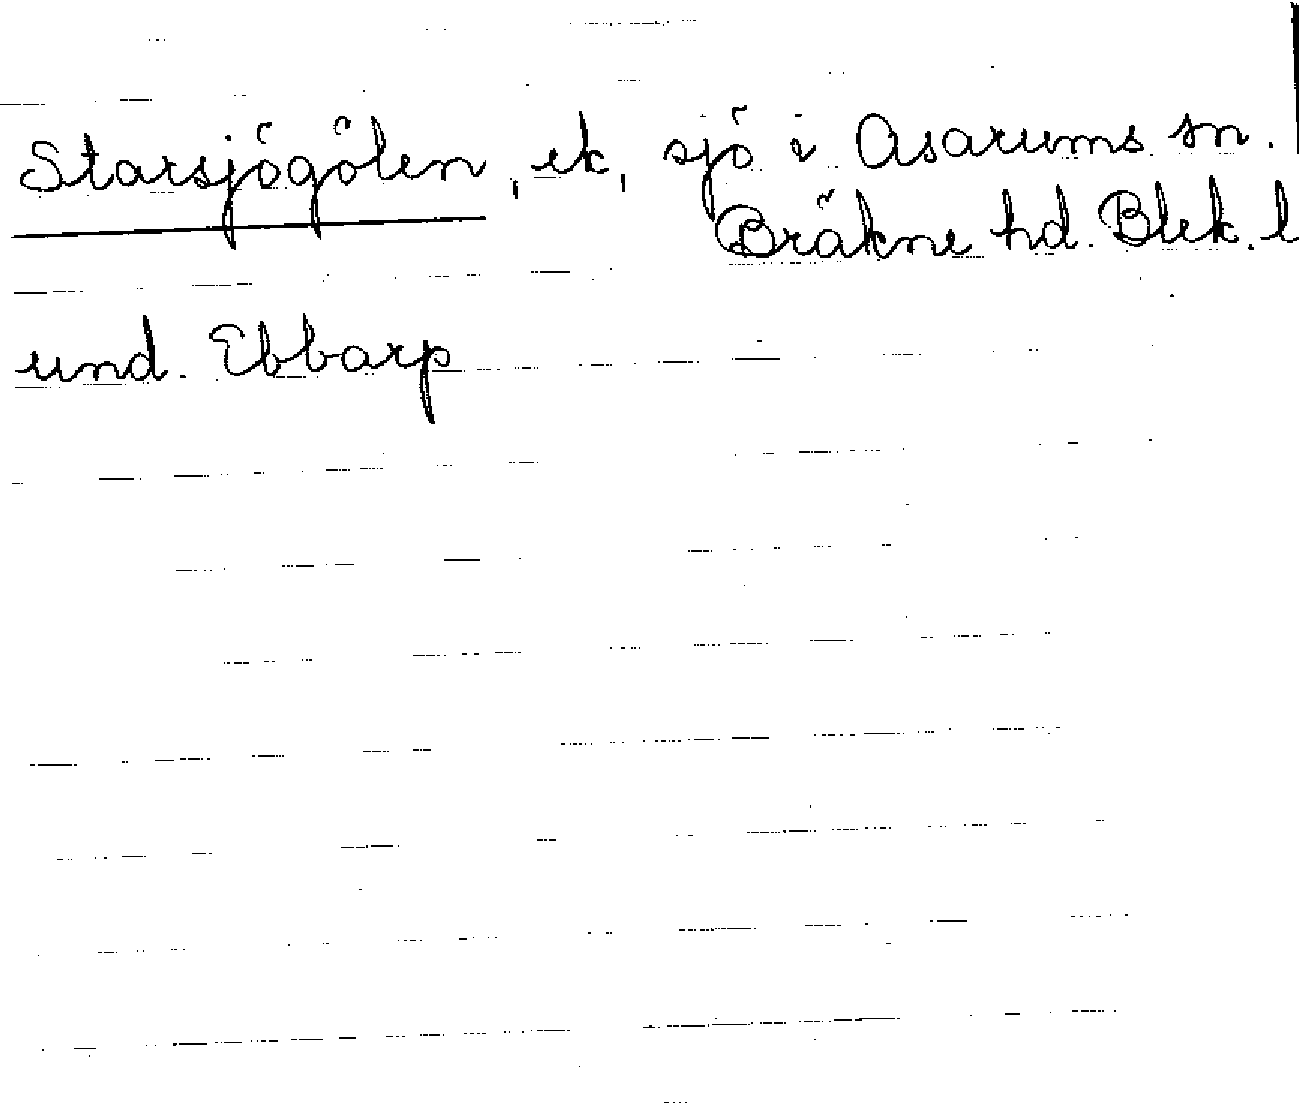 Starsjögölen, ek, sjö i Asarums sn.
Bräkne hd. Blek. l
und. Ebbarp